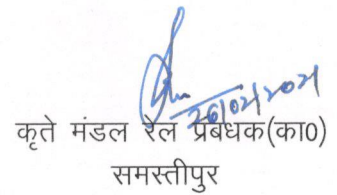 26/02/2021
कृते मंडल रेल प्रबंधक(का0)
समस्तीपुर